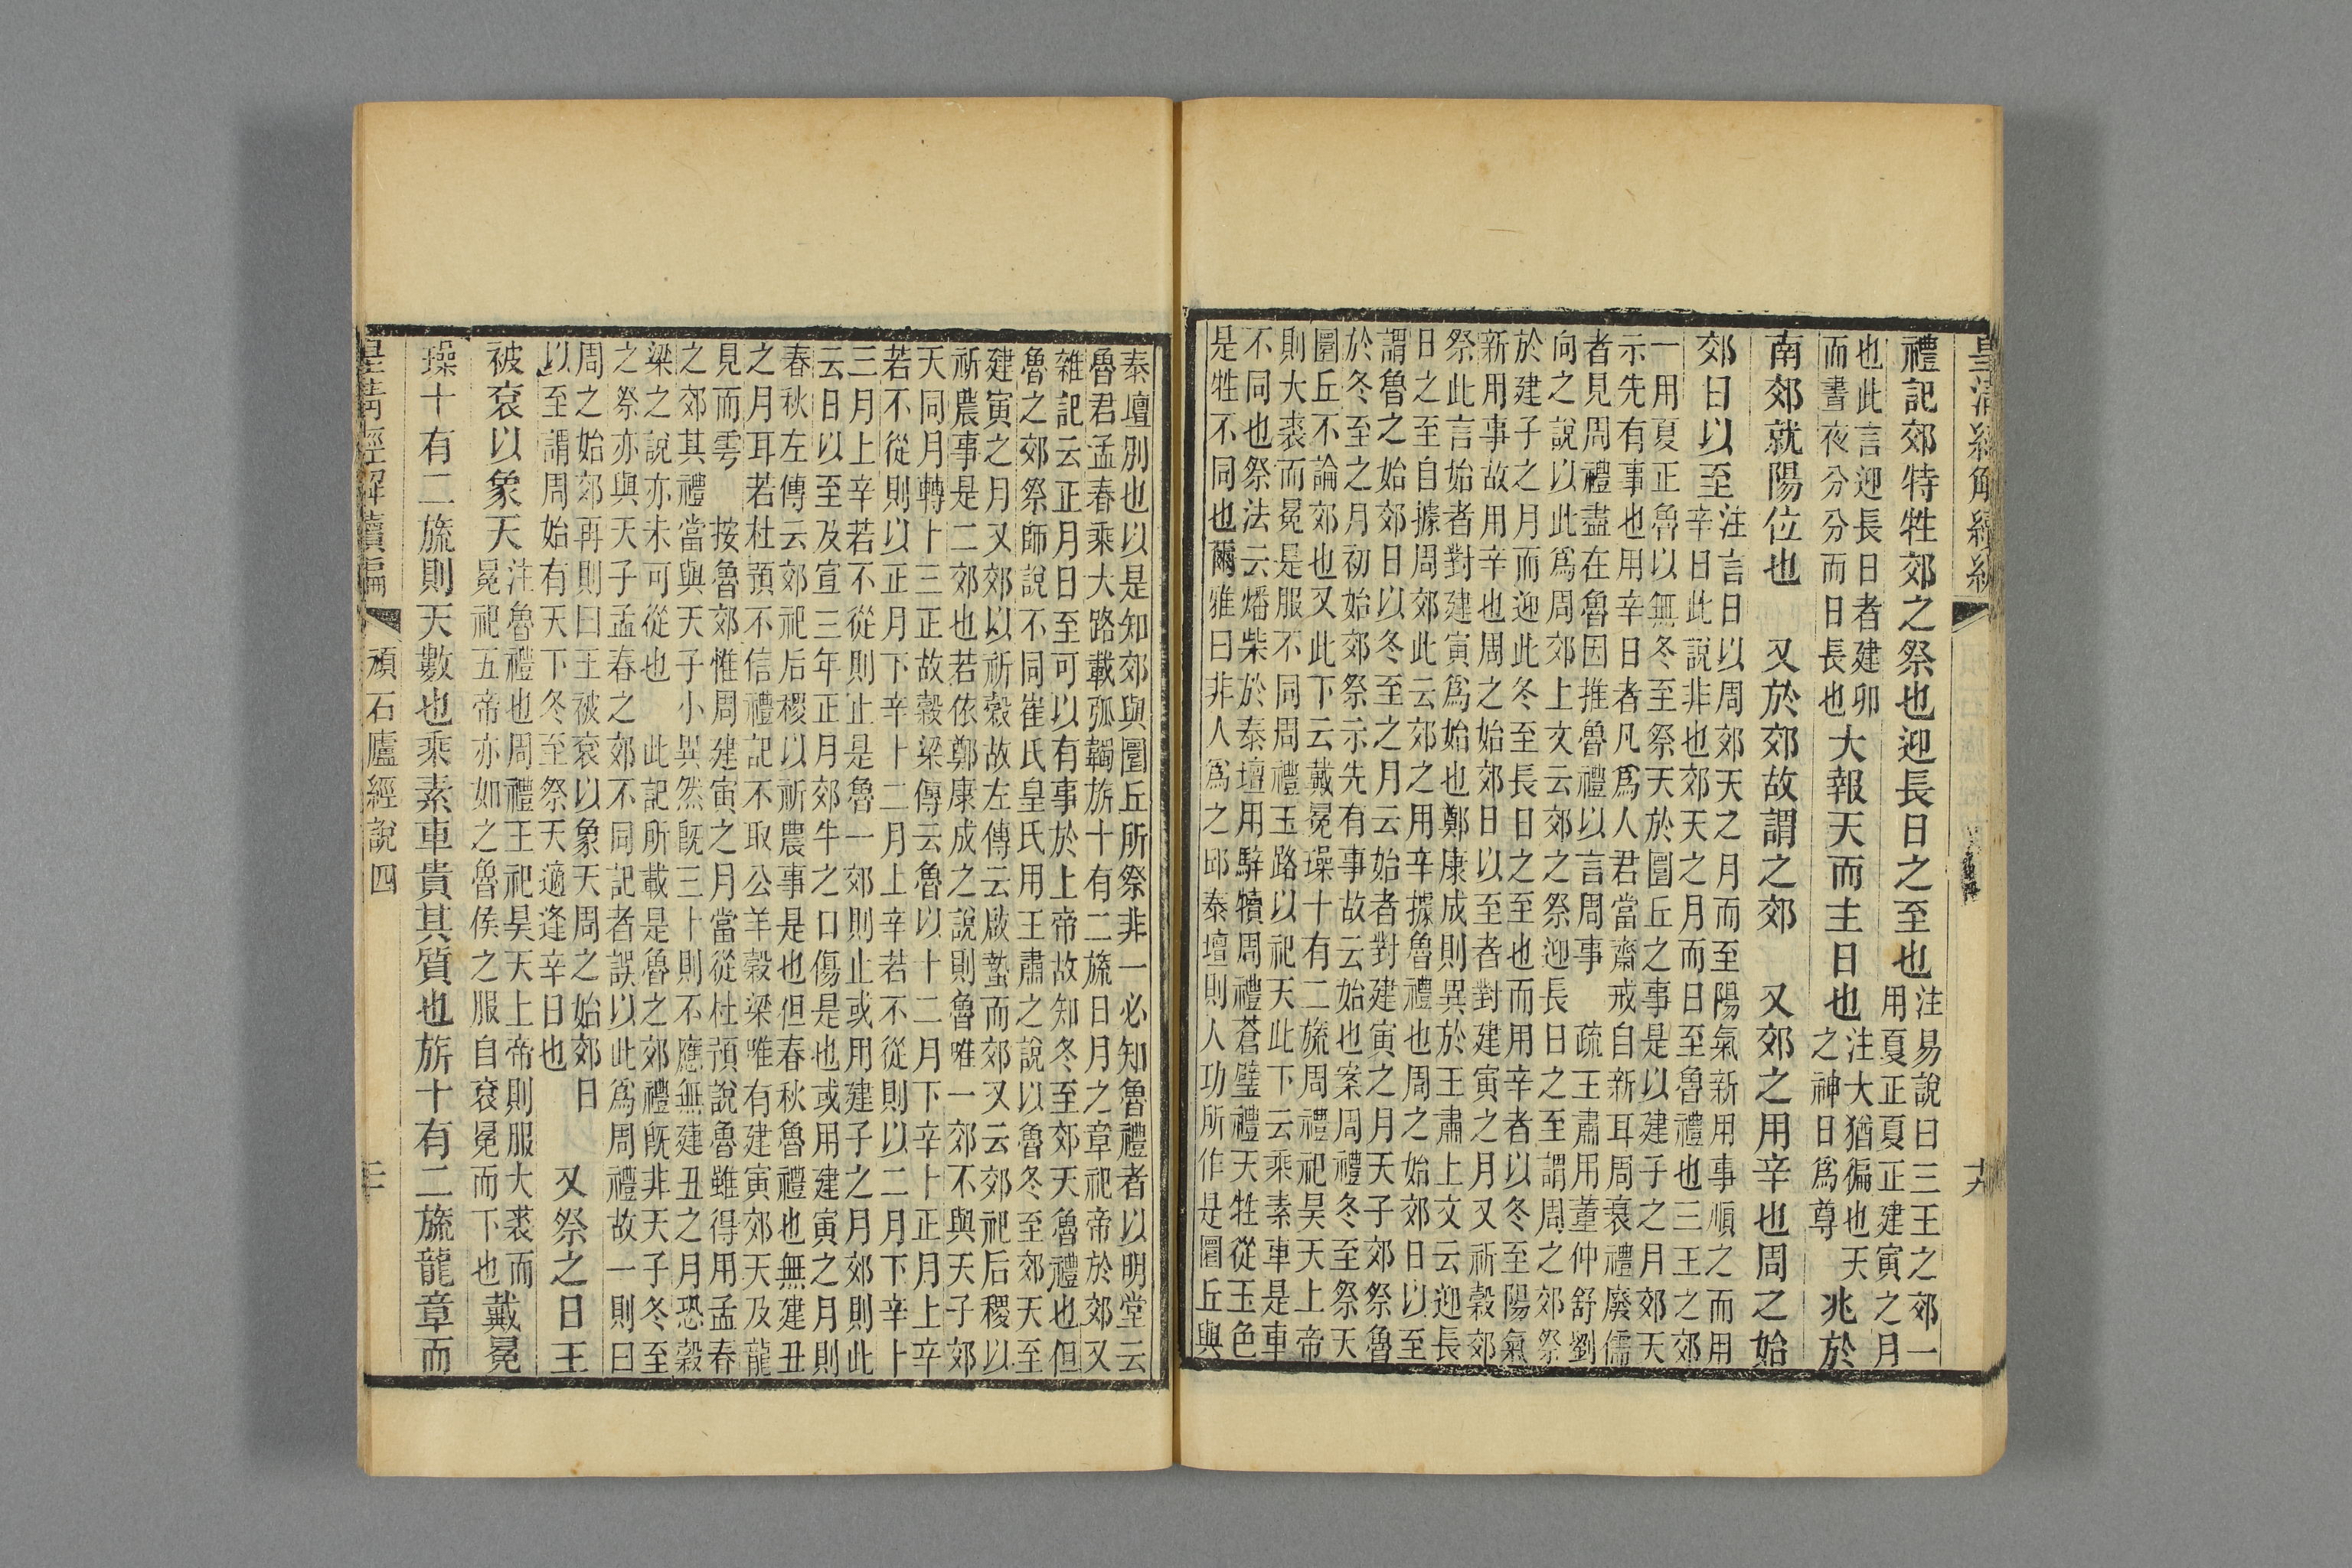 禮記郊特牲郊之祭也迎長日之至也注易說曰三王之郊一
用夏正夏正建寅之月
也此言迎長日者建卯
而晝夜分分而日長也大報天而主日也注大猶徧也天
之神日爲尊兆於
南郊就陽位也　又於郊故謂之郊　又郊之用辛也周之始
郊日以至注言日以周郊天之月而至陽氣新用事順之而用
辛日此說非也郊天之月而日至魯禮也三王之郊
一用夏正魯以無冬至祭天於圜丘之事是以建子之月郊天
示先有事也用辛日者凡爲人君當齋戒自新耳周衰禮廢儒
者見周禮盡在魯因推魯禮以言周事　疏王肅用董仲舒劉
向之說以此爲周郊上文云郊之祭迎長日之至謂周之郊祭
於建子之月而迎此冬至長日之至也而用辛者以冬至陽氣
新用事故用辛也周之始郊日以至者對建寅之月又祈穀郊
祭此言始者對建寅爲始也鄭康成則異於王肅上文云迎長
日之至自據周郊此云郊之用辛據魯禮也周之始郊日以至
謂魯之始郊日以冬至之月云始者對建寅之月天子郊祭魯
於冬至之月初始郊祭示先有事故云始也案周禮冬至祭天
圜丘不論郊也又此下云戴冕璪十有二旒周禮祀昊天上帝
則大裘而冕是服不同周禮玉路以祀天此下云乘素車是車
不同也祭法云燔柴於泰壇用騂犢周禮蒼璧禮天牲從玉色
是牲不同也爾雅曰非人爲之邱泰壇則人功所作是圜丘與
泰壇別也以是知郊與圜丘所祭非一必知魯禮者以明堂云
魯君孟春乘大路載弧韣旂十有二旒日月之章祀帝於郊又
雜記云正月日至可以有事於上帝故知冬至郊天魯禮也但
魯之郊祭師說不同崔氏皇氏用王肅之說以魯冬至郊天至
建寅之月又郊以祈穀故左傳云啟蟄而郊又云郊祀后稷以
祈農事是二郊也若依鄭康成之說則魯唯一郊不與天子郊
天同月轉卜三正故穀梁傳云魯以十二月下辛卜正月上辛
若不從則以正月下辛卜二月上辛若不從則以二月下辛卜
三月上辛若不從則止是魯一郊則止或用建子之月郊則此
云日以至及宣三年正月郊牛之口傷是也或用建寅之月則
春秋左傳云郊祀后稷以祈農事是也但春秋魯禮也無建丑
之月耳若杜預不信禮記不取公羊穀梁唯有建寅郊天及龍
見而雩　按魯郊惟周建寅之月當從杜預說魯雖得用孟春
之郊其禮當與天子小異然既三卜則不應無建丑之月恐穀
梁之說亦未可從也　此記所載是魯之郊禮既非天子冬至
之祭亦與天子孟春之郊不同記者誤以此爲周禮故一則曰
周之始郊再則曰王被袞以象天周之始郊日
以至謂周始有天下冬至祭天適逢辛日也　又祭之日王
被袞以象天注魯禮也周禮王祀昊天上帝則服大裘而
冕祀五帝亦如之魯侯之服自袞冕而下也戴冕
璪十有二旒則天數也乘素車貴其質也旂十有二旒龍章而
皇清經解續編　頑石廬經說四